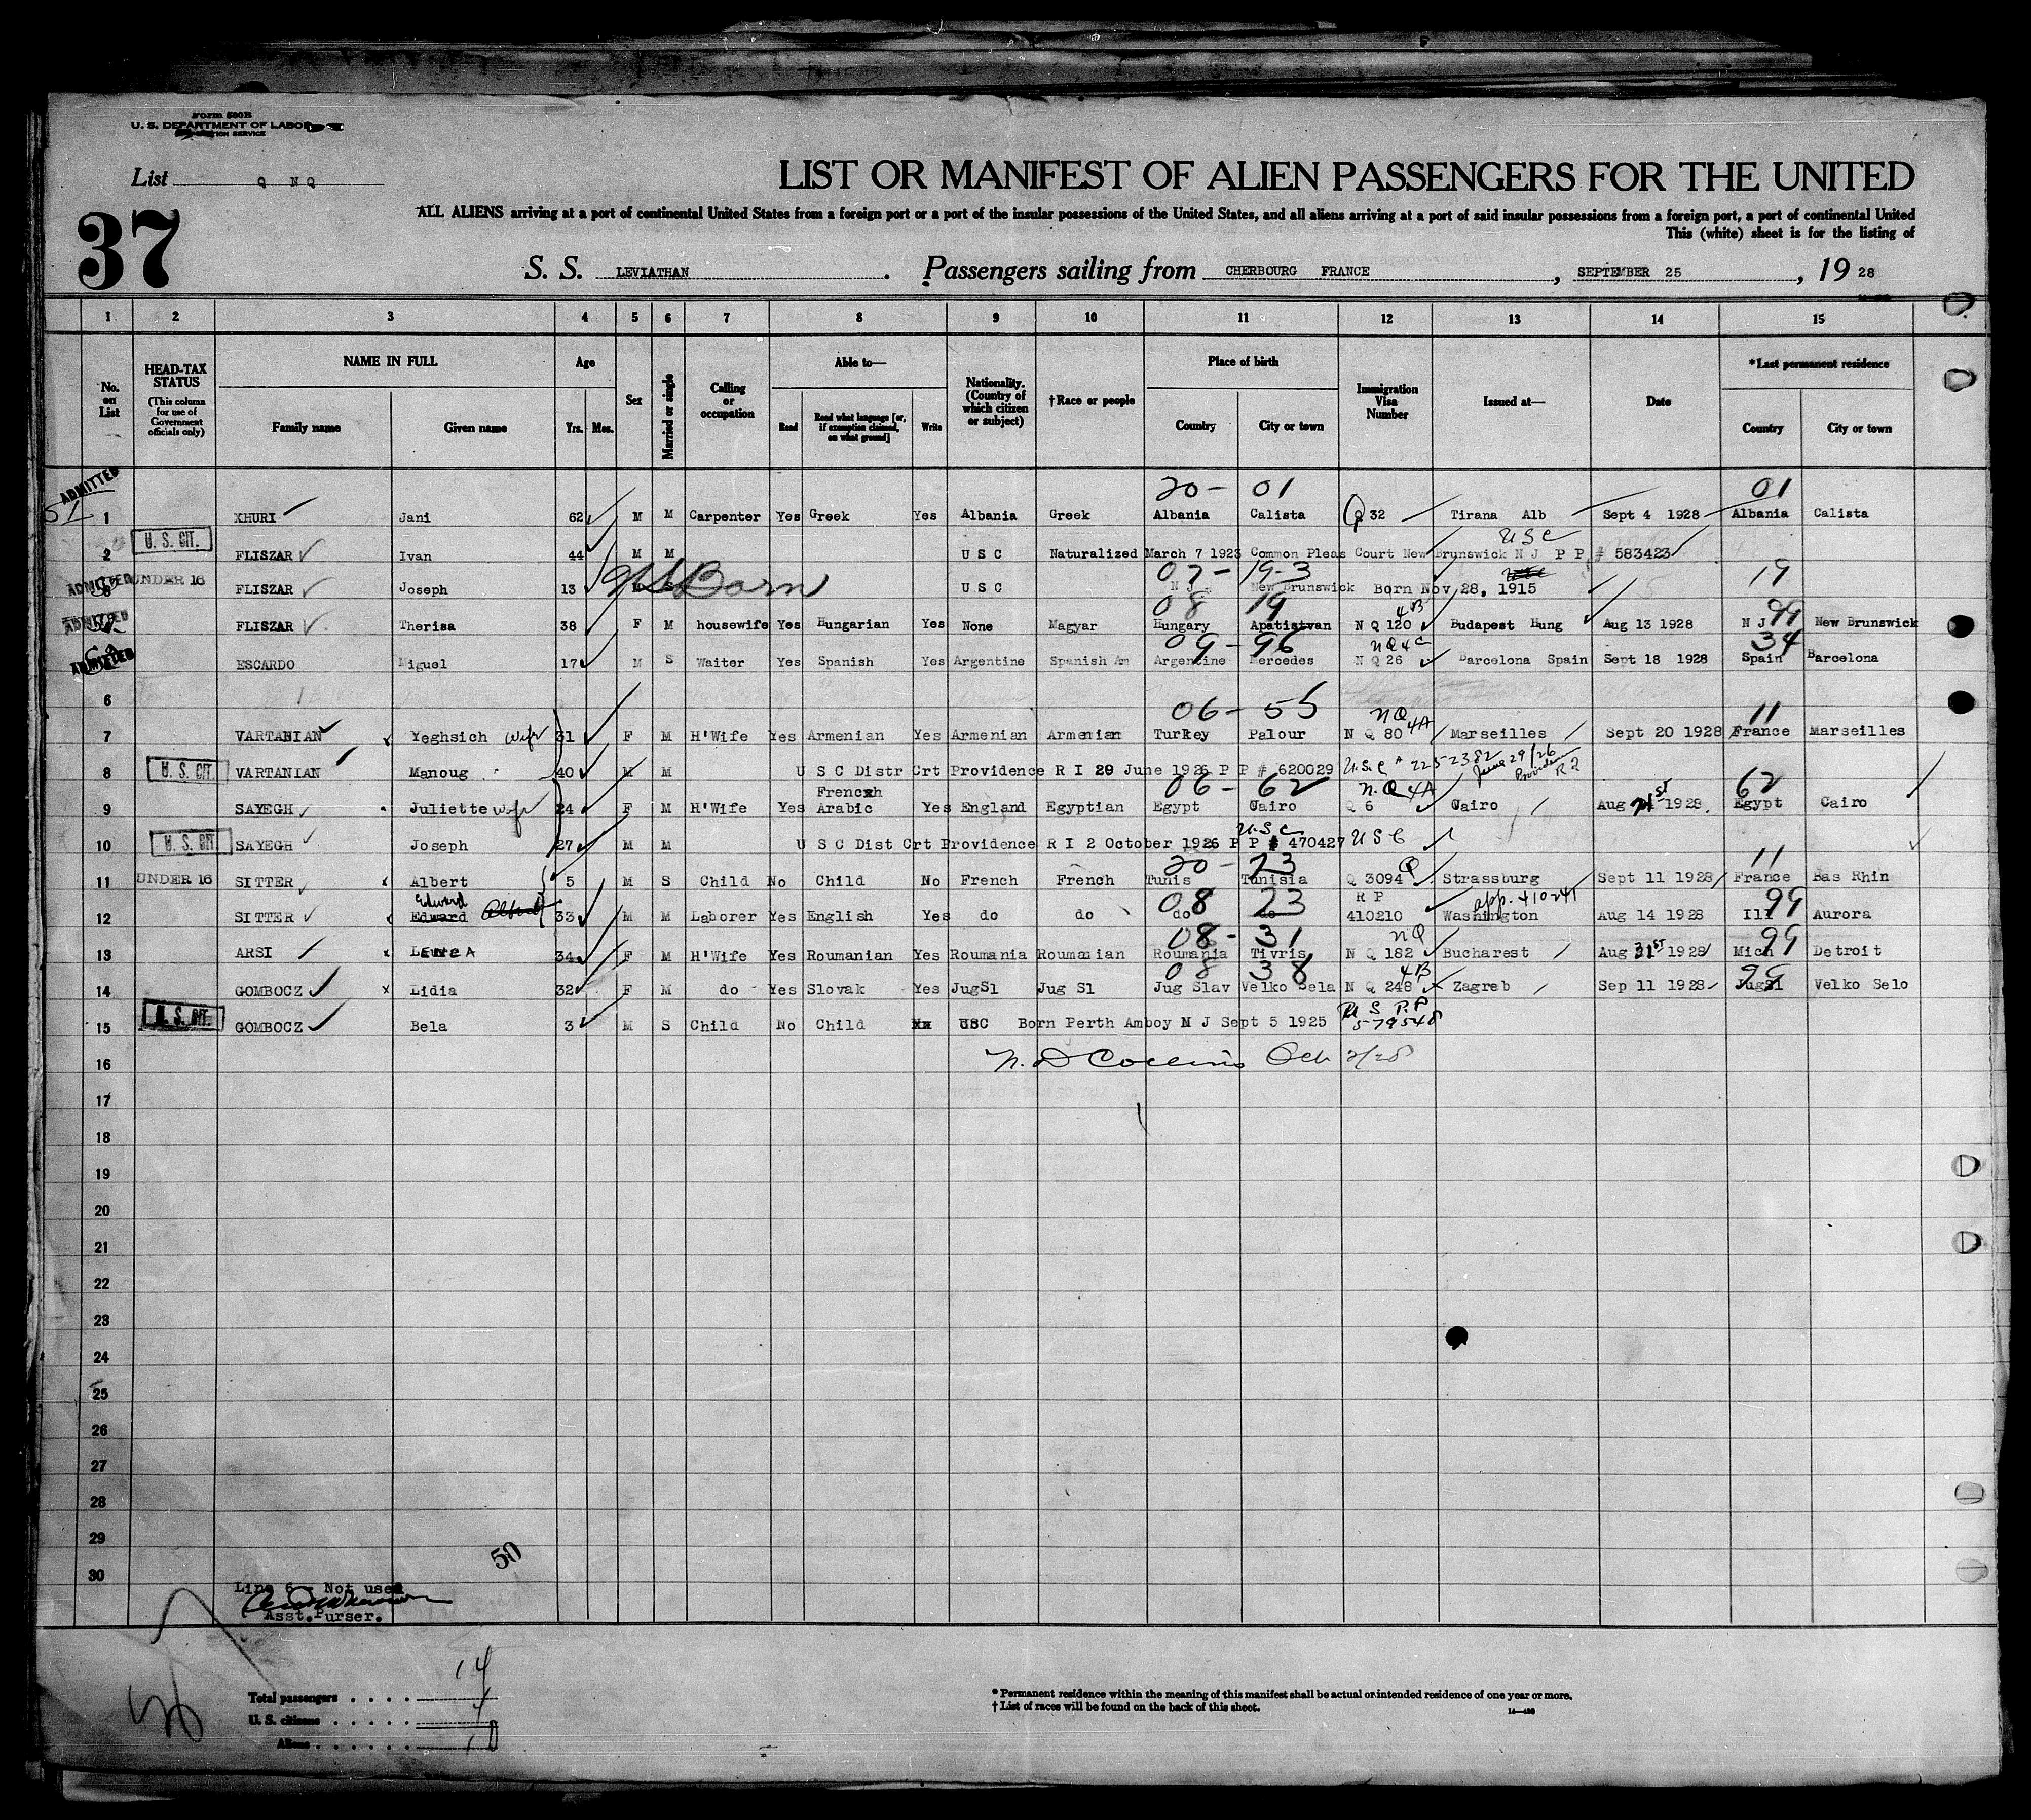 Form 500B
U. S. DEPARTMENT OF LABOR
List Q NQ
37
LIST OR MANIFEST OF ALIEN PASSENGERS FOR THE UNITED
ALL ALIENS arriving at a port of continental United States from a foreign port or a port of the insular possessions of the United States, and all aliens arriving at a port of said insular possessions from a foreign port, a port of continental United
This (white) sheet is for the listing of
S. S. LEVIATHAN. Passengers sailing from CHERBOURG FRANCE, SEPTEMBER 25, 19 28
1 2 3 4 5 6 7 8 9 10 11 12 13 14 15
No. on List HEAD-TAX STATUS (This column for use of Government officials only) NAME IN FULL Family name Given name Age Yrs. Mos. Sex Married or single Calling or occupation Able to— Read Read what language [or, if exemption claimed, on what ground] Write Nationality. (Country of which citizen or subject) †Race or people Place of birth Country City or town Immigration Visa Number Issued at— Date *Last permanent residence Country City or town
ADMITTED 20 - 01 01
SI 1 XHURI Jani 62 M M Carpenter Yes Greek Yes Albania Greek Albania Calista Q 32 Tirana Alb Sept 4 1928 Albania Calista
U. S. CIT. USC
2 FLISZAR Ivan 44 M M U S C Naturalized March 7 1923 Common Pleas Court New Brunswick N J P P # 583423
ADMITTED UNDER 16 US Born 07 - 19-3 19
FLISZAR Joseph 13 U S C N J New Brunswick Born Nov 28, 1915
ADMITTED 08 19 4B 99
FLISZAR Therisa 38 F M housewife Yes Hungarian Yes None Magyar Hungary Apatistvan N Q 120 Budapest Hung Aug 13 1928 N J New Brunswick
ADMITTED 09 - 96 NQ4C 34
ESCARDO Miguel 17 M S Waiter Yes Spanish Yes Argentine Spanish Am Argentine Mercedes N Q 26 Barcelona Spain Sept 18 1928 Spain Barcelona
6
06 - 55 NQ 4A 11
7 VARTANIAN Yeghsich wife 31 F M H'Wife Yes Armenian Yes Armenian Armenian Turkey Palour N Q 80 Marseilles Sept 20 1928 France Marseilles
8 U. S. CIT. VARTANIAN Manoug 40 M M U S C Distr Crt Providence R I 29 June 1926 P P # 620029 U.S.C # 2252382 June 29/26 Providence R I
06 - 62 N.Q 4A 62
9 SAYEGH Juliette wife 24 F M H'Wife Yes French Arabic Yes England Egyptian Egypt Cairo Q 6 Cairo Aug 21st 1928. Egypt Cairo
U.S.C
10 U. S. CIT. SAYEGH Joseph 27 M M U S C Dist Crt Providence R I 2 October 1926 P P # 470427 USC
20 - 23 Q 11
11 UNDER 16 SITTER Albert 5 M S Child No Child No French French Tunis Tunisia Q 3094 Strassburg Sept 11 1928 France Bas Rhin
Edward 08 23 R P app. 410241 99
12 SITTER Edward 33 M M Laborer Yes English Yes do do do do 410210 Washington Aug 14 1928 Ill Aurora
08 - 31 NQ 99
13 ARSI 34 F M H'Wife Yes Roumanian Yes Roumania Roumanian Roumania Tivris N Q 182 Bucharest Aug 31st 1928 Mich Detroit
08 38 4B 99
14 GOMBOCZ Lidia 32 F M do Yes Slovak Yes JugSl Jug Sl Jug Slav Velko Sela N Q 248 Zagreb Sep 11 1928 JugSl Velko Selo
15 U. S. CIT. GOMBOCZ Bela 3 M S Child No Child USC Born Perth Amboy N J Sept 5 1925 U S P.P 579548
16 N. D Collins Oct 2/28
17
18
19
20
21
22
23
24
25
26
27
28
29
30
50
Line 6 - Not used
Asst.Purser.
Total passengers . . . . 14
U. S. citizens . . . . . 4
Aliens . . . . . . 10
* Permanent residence within the meaning of this manifest shall be actual or intended residence of one year or more.
† List of races will be found on the back of this sheet.